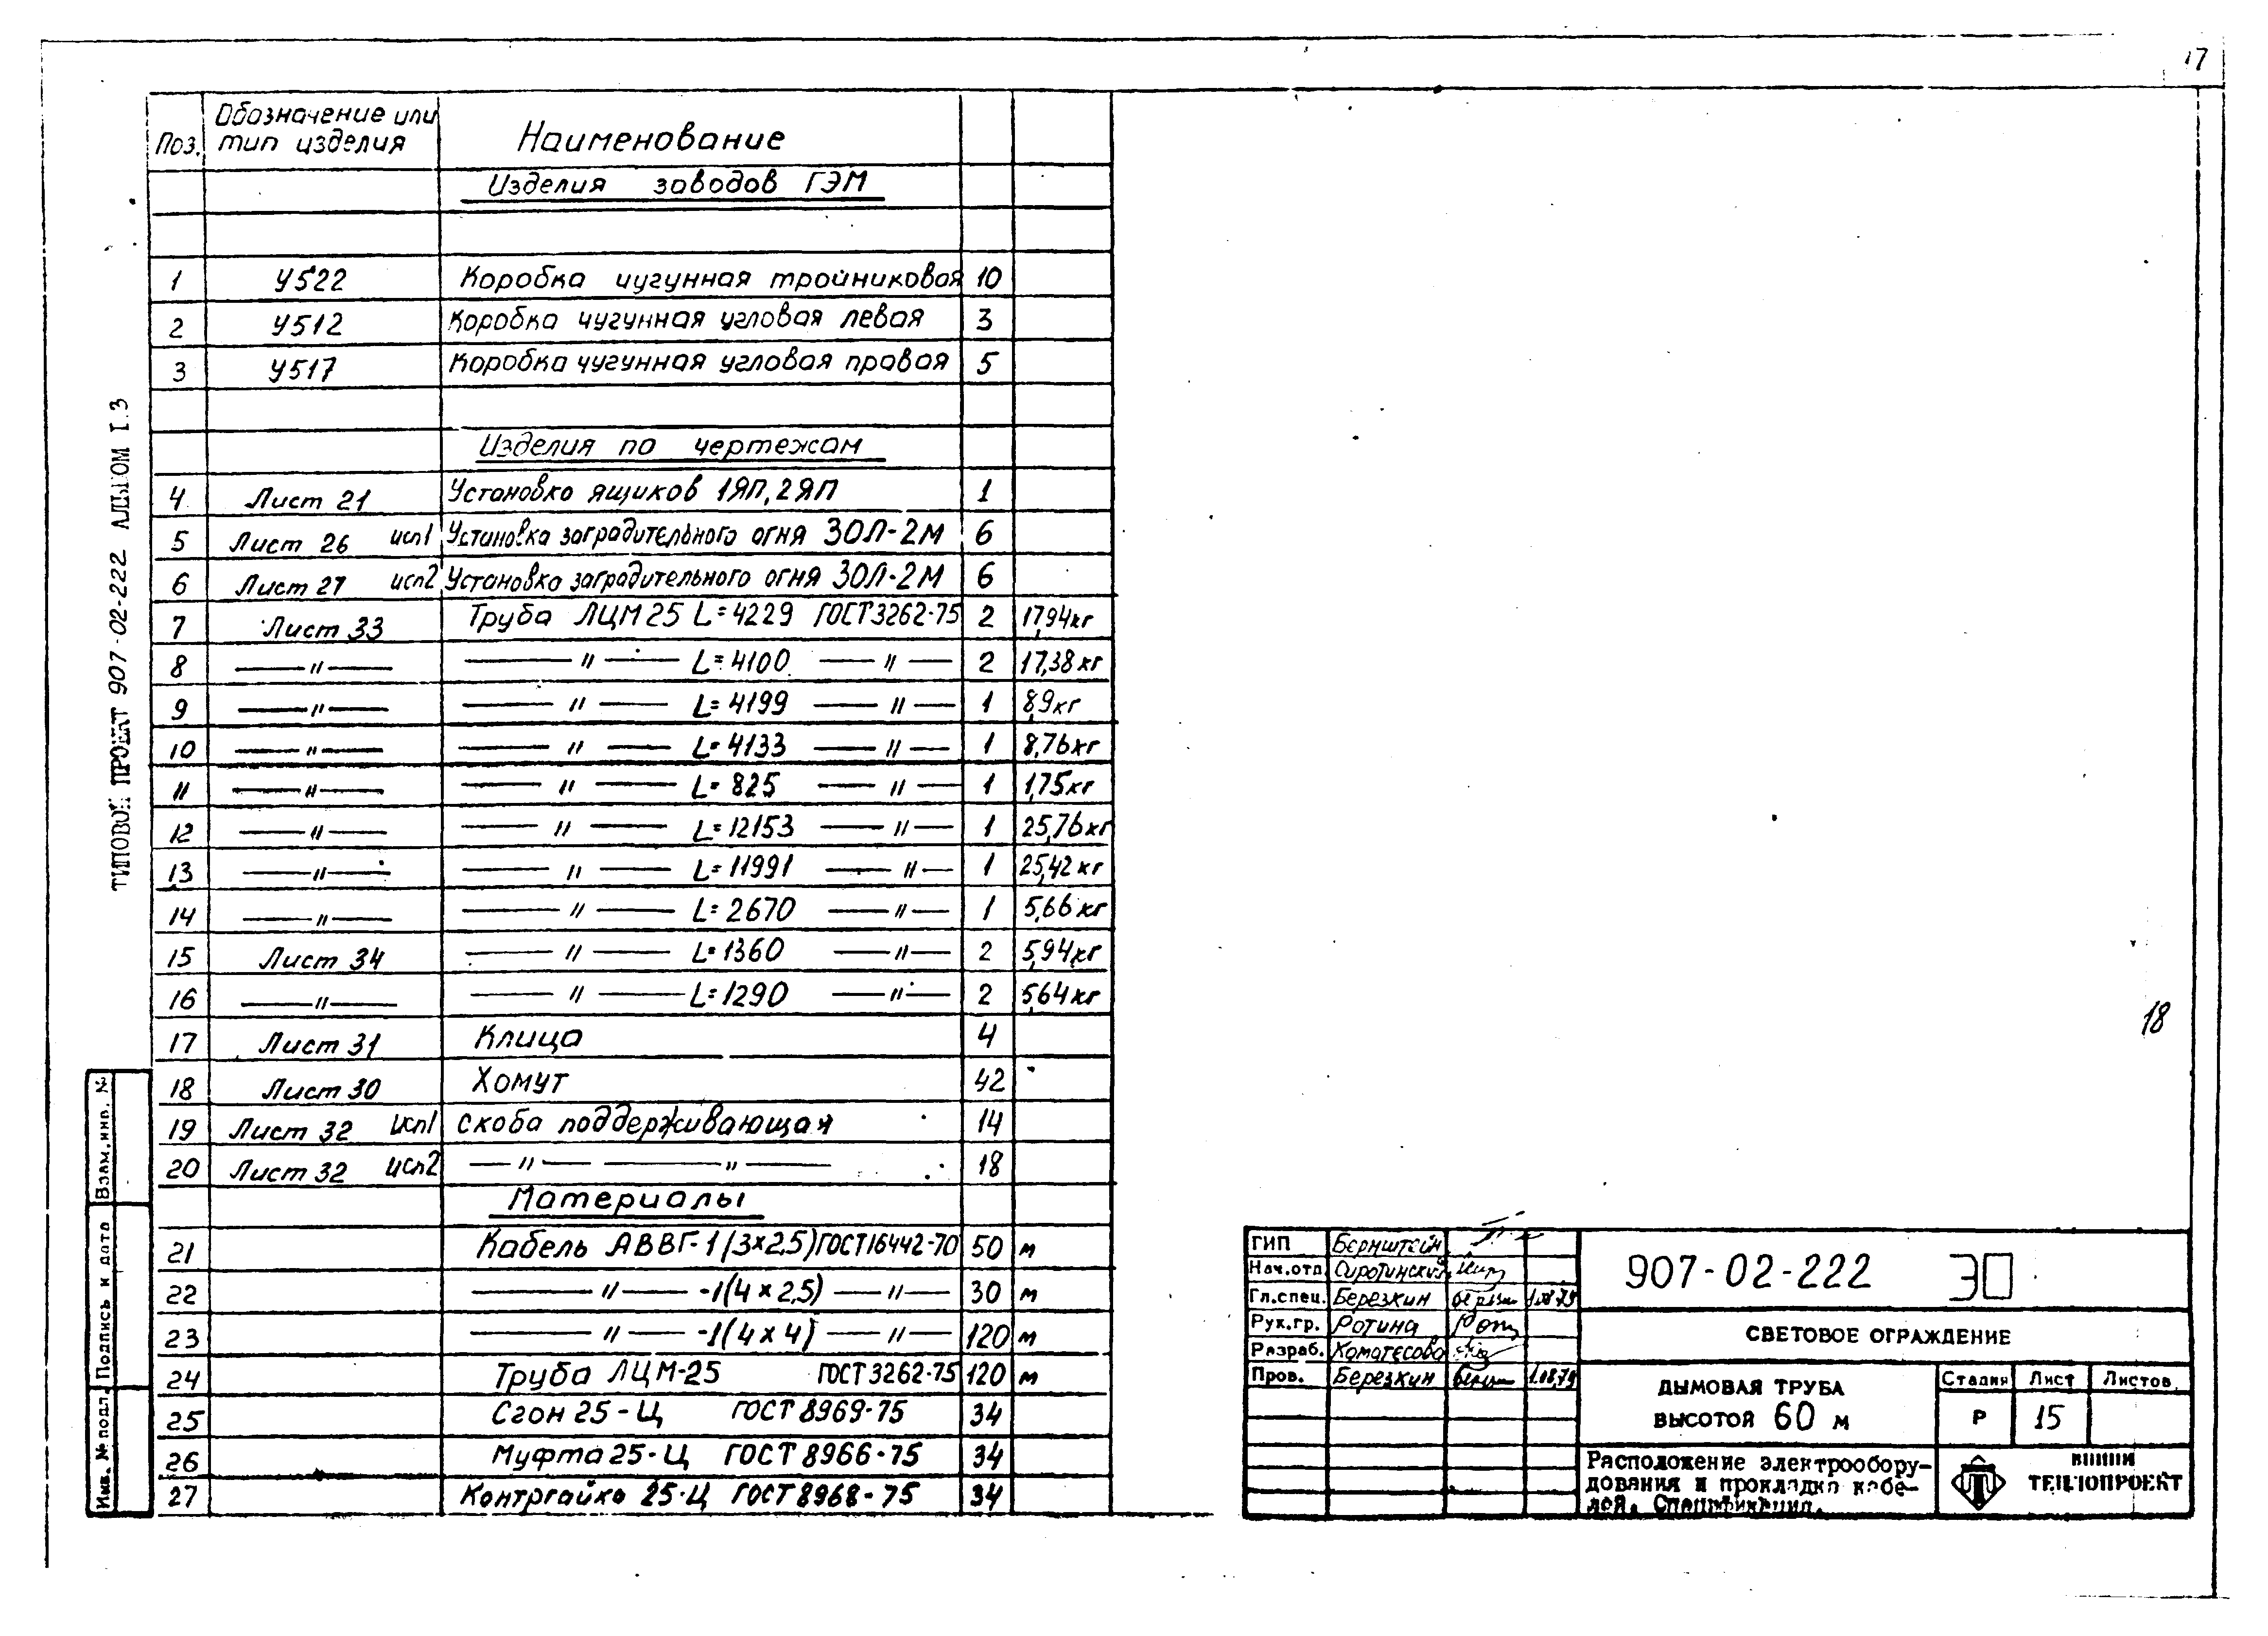 17
Поз. Обозначение или тип изделия Наименование
Изделия заводов ГЭМ
1 У522 Коробка чугунная тройниковая 10
2 У512 Коробка чугунная угловая левая 3
3 У517 Коробка чугунная угловая правая 5
Изделия по чертежам
4 Лист 21 Установка ящиков 1ЯП, 2ЯП 1
5 Лист 26 исп1 Установка заградительного огня ЗОЛ-2М 6
6 Лист 27 исп2 Установка заградительного огня ЗОЛ-2М 6
7 Лист 33 Труба ЛЦМ 25 L=4229 ГОСТ 3262-75 2 17,94кг
8 —〃— —〃— L=4100 —〃— 2 17,38кг
9 —〃— —〃— L=4199 —〃— 1 8,9кг
10 —〃— —〃— L=4133 —〃— 1 8,76кг
11 —〃— —〃— L=825 —〃— 1 1,75кг
12 —〃— —〃— L=12153 —〃— 1 25,76кг
13 —〃— —〃— L=11991 —〃— 1 25,42кг
14 —〃— —〃— L=2670 —〃— 1 5,66кг
15 Лист 34 —〃— L=1360 —〃— 2 5,94кг
16 —〃— —〃— L=1290 —〃— 2 5,64кг
17 Лист 31 Клица 4
18 Лист 30 Хомут 42
19 Лист 32 исп1 Скоба поддерживающая 14
20 Лист 32 исп2 —〃— —〃— 18
Материалы
21 Кабель АВВГ-1(3×2,5) ГОСТ 16442-70 50 м
22 —〃— -1(4×2,5) —〃— 30 м
23 —〃— -1(4×4) —〃— 120 м
24 Труба ЛЦМ-25 ГОСТ 3262-75 120 м
25 Сгон 25-Ц ГОСТ 8969-75 34
26 Муфта 25-Ц ГОСТ 8966-75 34
27 Контргайка 25-Ц ГОСТ 8968-75 34
ТИПОВОЙ ПРОЕКТ 907-02-222 АЛЬБОМ I.3
Взам.инв. №
Подпись и дата
Инв. № подл.
18
ГИП Бернштейн
Нач.отд. Сиротинский
Гл.спец. Березкин
Рук.гр. Ротина
Разраб.
Пров. Березкин 1.08.79
907-02-222 ЭО
СВЕТОВОЕ ОГРАЖДЕНИЕ
ДЫМОВАЯ ТРУБА
ВЫСОТОЙ 60 м
Стадия Лист Листов
Р 15
Расположение электрообору-
дования и прокладка кабе-
лей. Спецификация.
ВНИПИ
ТЕПЛОПРОЕКТ